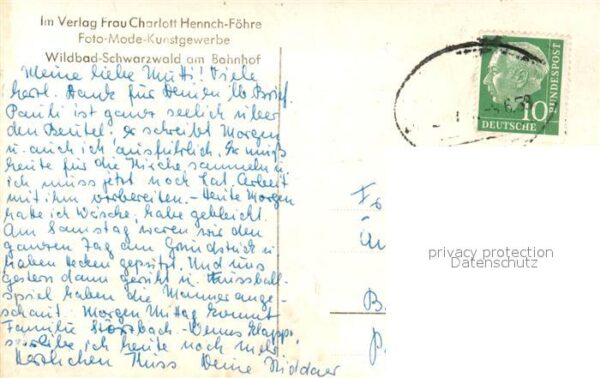 Im Verlag Frau Charlott Hennch-Föhre
Foto-Mode-Kunstgewerbe
Wildbad-Schwarzwald am Bahnhof
Meine liebe Mutti! Viele
herzl. Dank für Deinen lb. Brief.
Pauli ist ganz seelich über
den Beutel. er schreibt Morgen
u. auch ich ausführlich. Er muß
heute für die Kirche sammeln u.
ich muss jetzt noch Lat. Arbeit
mit ihm vorbereiten. - Heute Morgen
hatte ich Wäsche, habe gebleicht.
Am Samstag waren wir den
ganzen Tag am Grundstück u.
haben Hecken geputzt. Und
gestern dann geruht u. Fussball-
spiel haben die Männer ange-
schaut. Morgen Mittag kommt
Familie Wenns klappt
ich heute noch mehr
Herzlichen Kuss Deine
10
DEUTSCHE
BUNDESPOST
privacy protection
Datenschutz